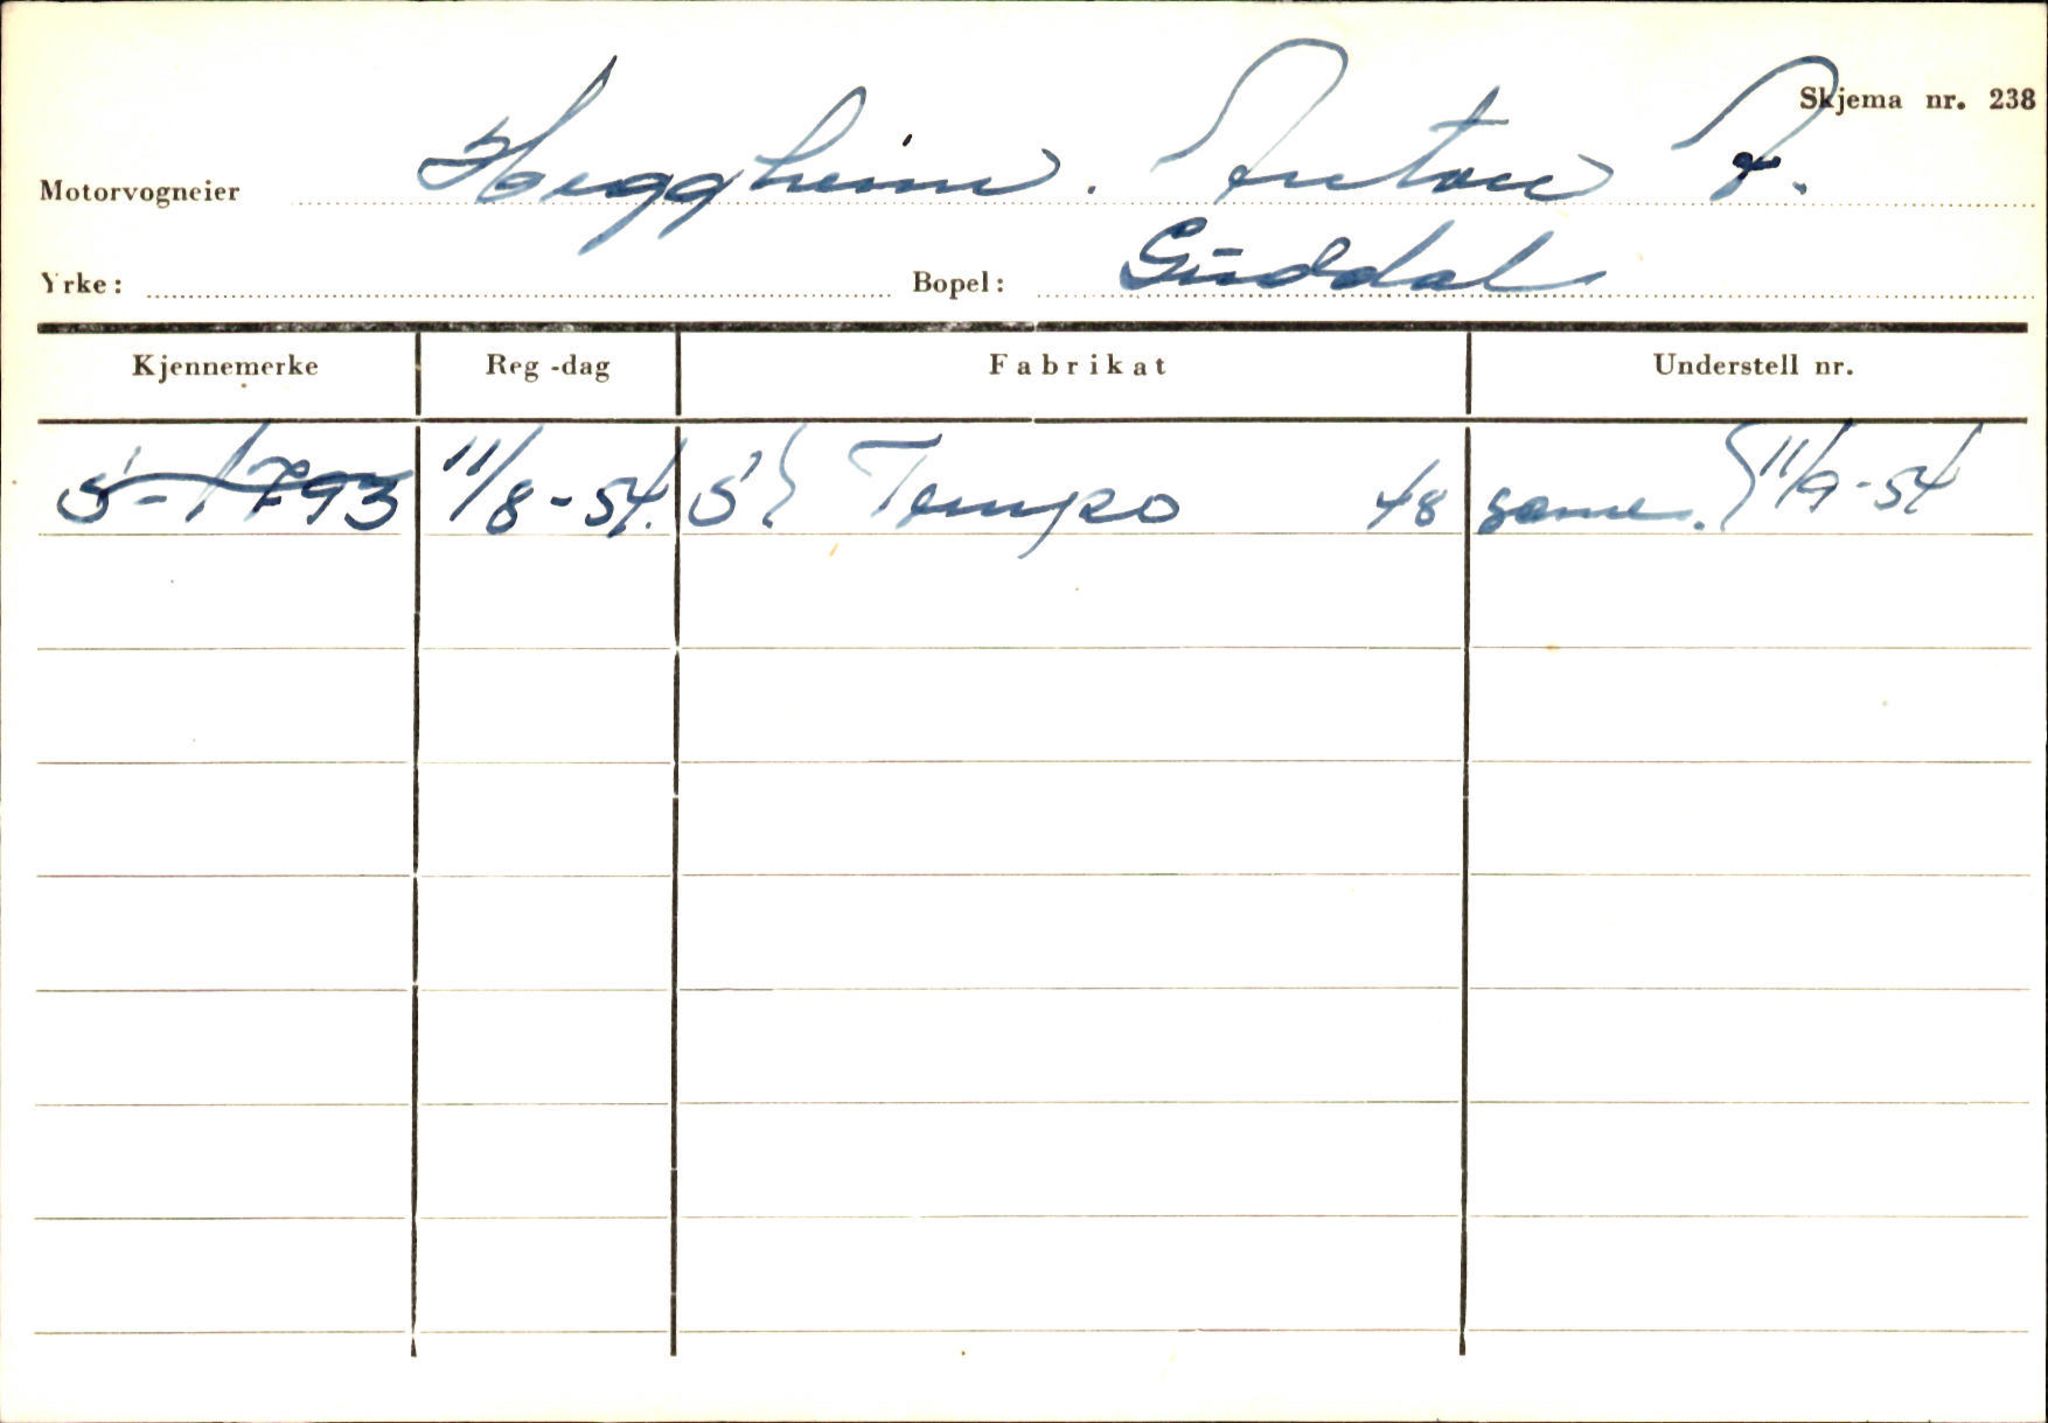 Skjema nr. 238
Motorvogneier Heggheim. Anton A.
Yrke: Bopel: Guddal
Kjennemerke Reg-dag Fabrikat Understell nr.
S-1793 11/8-54. S. Tempo 48 samme. 11/9-54